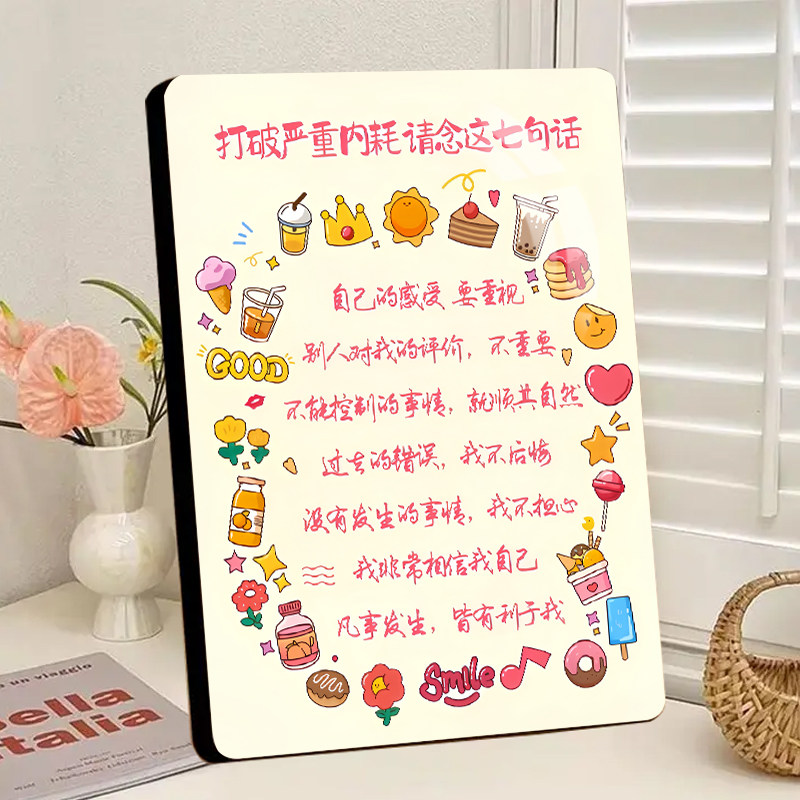 打破严重内耗 请念这七句话
自己的感受 要重视
别人对我的评价，不重要
GOOD
不能控制的事情，就顺其自然
过去的错误，我不后悔
没有发生的事情，我不担心
我非常相信我自己
凡事发生，皆有利于我
Smile
o un viaggio
Bella
Italia